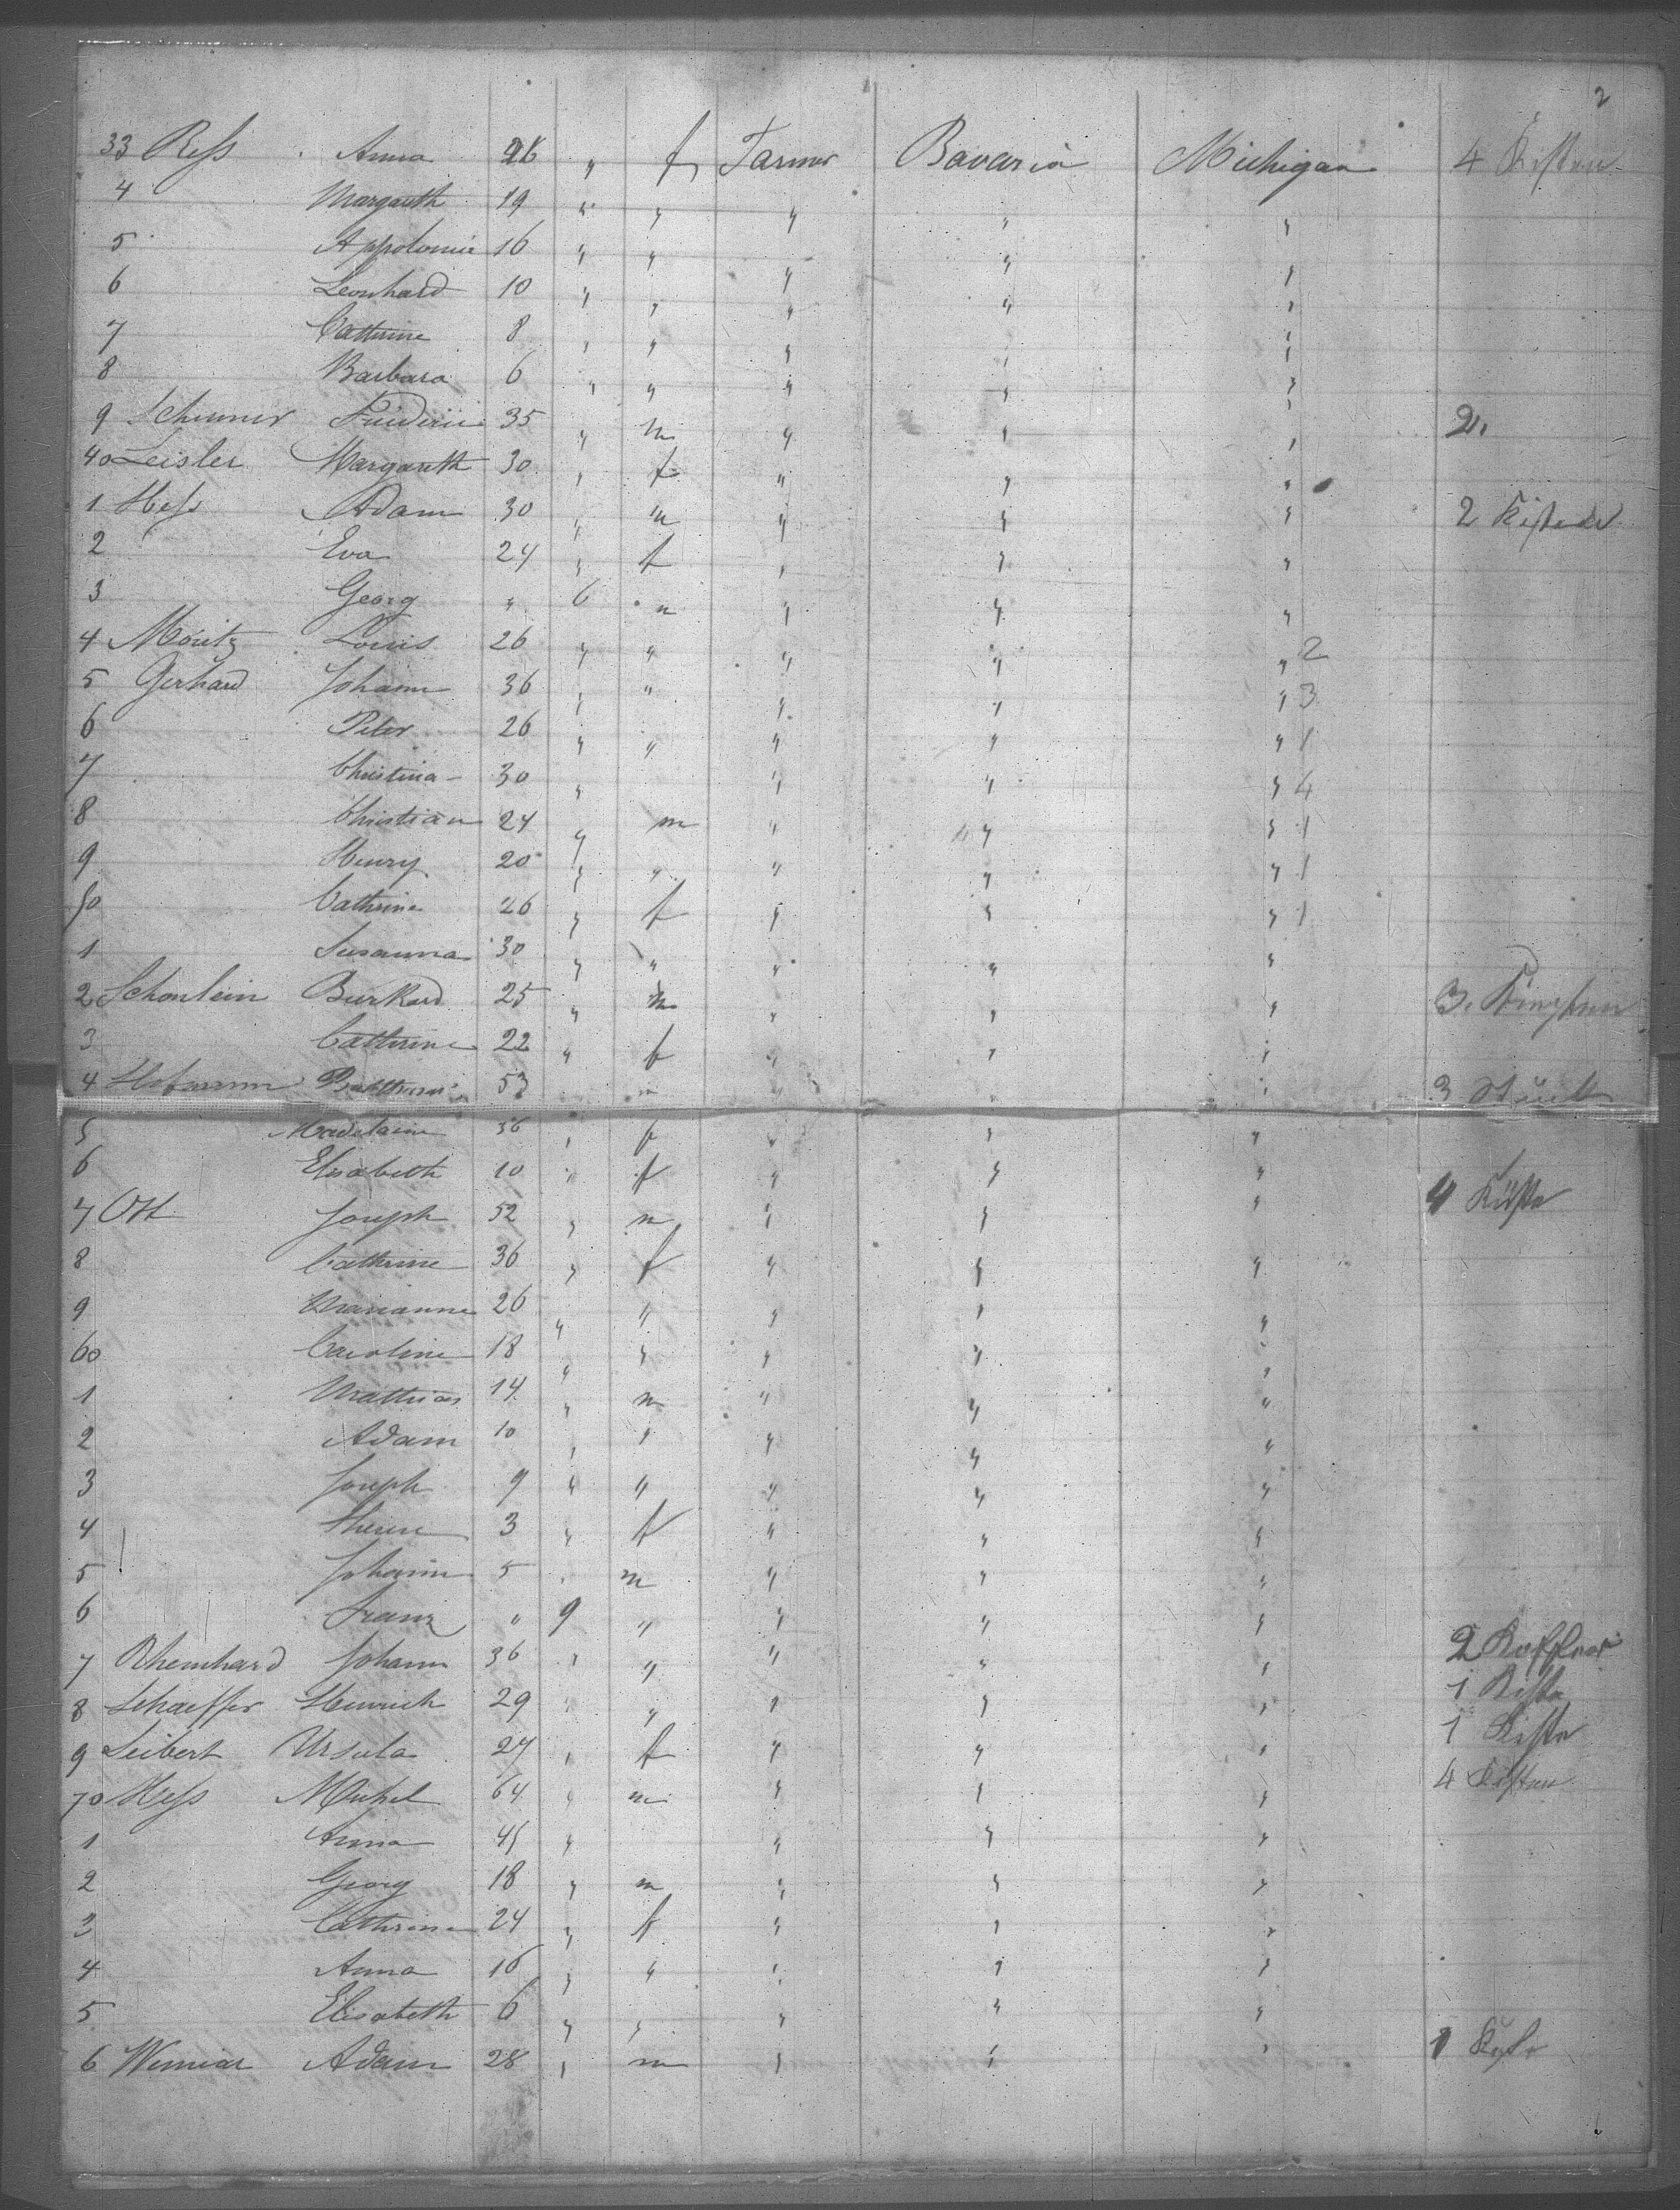 2
33 Reſs Anna 26 " f Farmer Bavaria Michigan 4 Kisten
4 Margareth 19 " " " " "
5 Appolonie 16 " " " " "
6 Leonhard 10 " " " " "
7 Cathrine 8 " " " " "
8 Barbara 6 " " " " "
9 35 " m " " " 2.
40 Leisler Margareth 30 " f " " "
1 Heſs Adam 30 " m " " " 2 Kisten
2 Eva 24 " f " " "
3 Georg " 6 m " " "
4 Moritz Louis 26 " " " " " 2
5 Gerhard Johann 36 " " " " " 3
6 Peter 26 " " " " " 1
7 Christina 30 " " " " 4
8 Christian 24 " m " " " 1
9 Henry 20 " " " " " 1
50 Cathrine 26 " f " " " 1
1 Susanna 30 " " " " "
2 Schonlein Burkard 25 " m " " " 3.
3 Cathrine 22 " f " " "
4 Hofmann 53 m " " " 3 Stück
5 Madelaine 36 " f " " "
6 Elisabeth 10 " f " " "
7 Ott Joseph 52 " m " " " 4 Kiste
8 Cathrine 36 " f " " "
9 Marianne 26 " " " " "
60 Caroline 18 " " " " "
1 Mathias 14 " m " " "
2 Adam 10 " " " " "
3 Joseph 9 " " " " "
4 3 " f " " "
5 Johann 5 " m " " "
6 Franz " 9 " " " "
7 Rheinhard Johann 36 " " " " " 2 Koffner
8 Schaeffer Heinrich 29 " " " " " 1 Kiste
9 Seibert Ursula 24 " f " " " 1 Kiste
70 Heſs Michel 64 " m " " " 4 Kisten
1 Anna 45 " " " "
2 Georg 18 " m " " "
3 Cathrine 24 " f " " "
4 Anna 16 " " " " "
5 Elisabeth 6 " " " " "
6 Adam 28 " m " " " 1